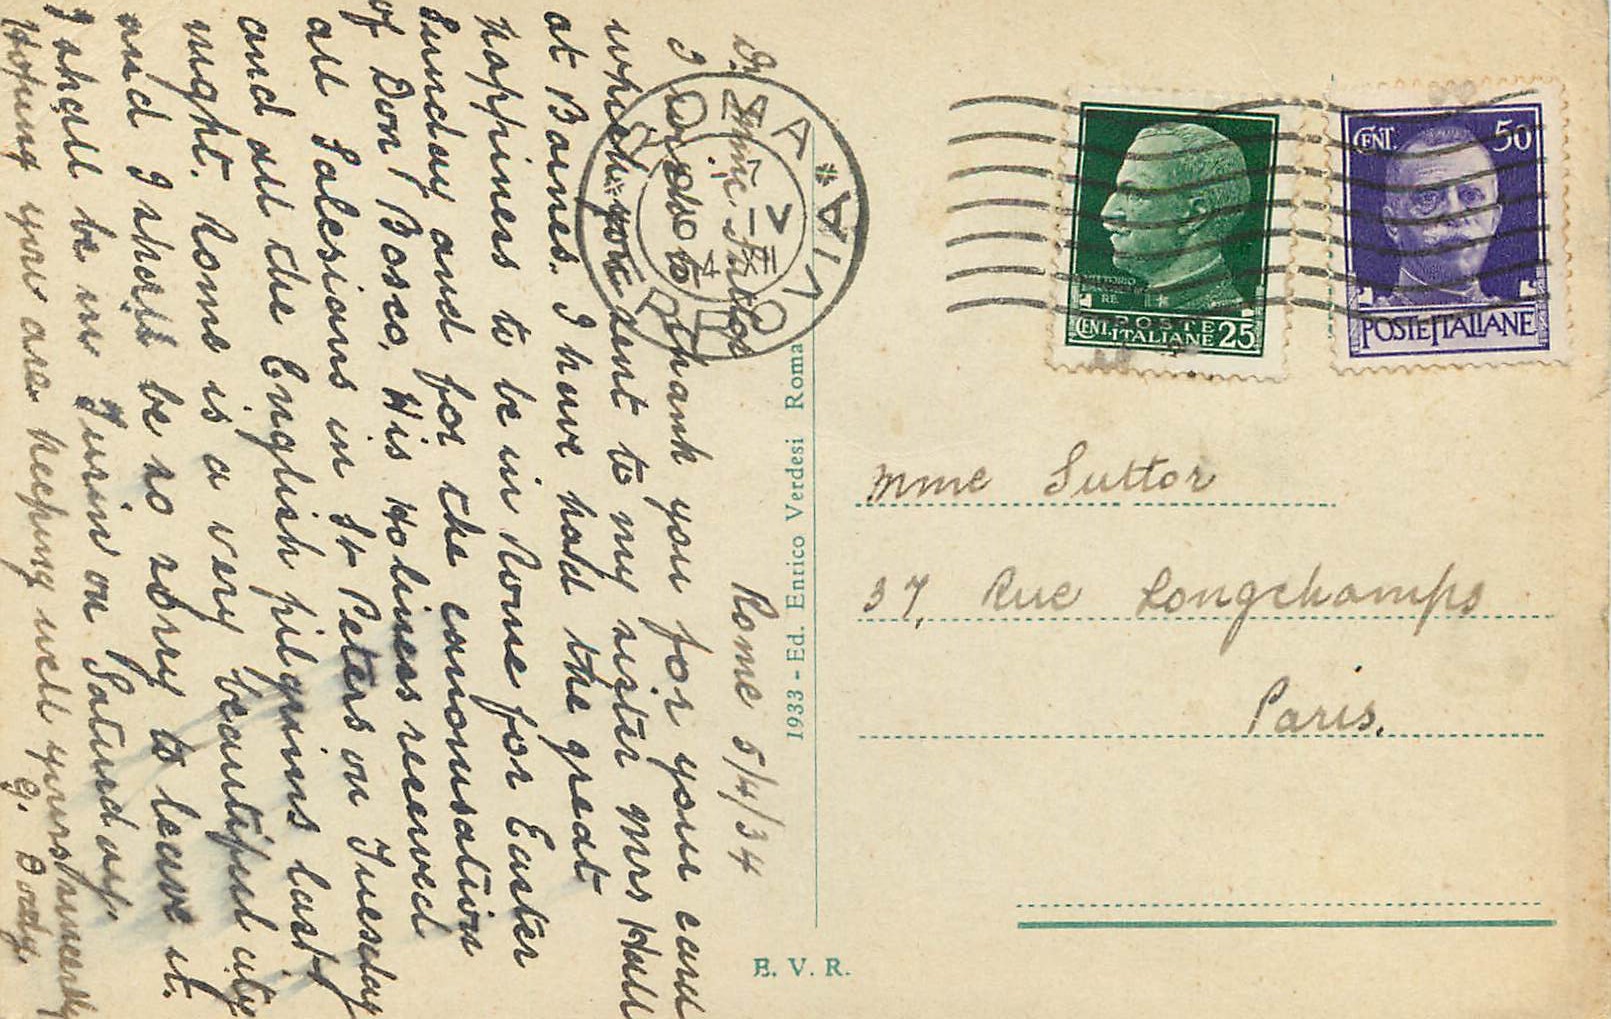 Rome 5/4/34
Dr Mme Suttor
I would to thank you for your card
which you sent to my sister Mrs Hall
at Barnes. I have had the great
happiness to be in Rome for Easter
Sunday and for the canonisation
of Don Bosco, His Holiness received
all Salesians in St Peters on Tuesday
and all the English pilgrims last
night. Rome is a very beautiful city
and I shall be so sorry to leave it.
I shall be in Turin on Saturday.
Hoping you are keeping well yours sincerely
G. Dody.
1933 - Ed. Enrico Verdesi Roma
E. V. R.
VITTORIO
RE
POSTE
CENT. ITALIANE 25
CENT. 50
POSTE ITALIANE
Mme Suttor
37, Rue Longchamps
Paris.